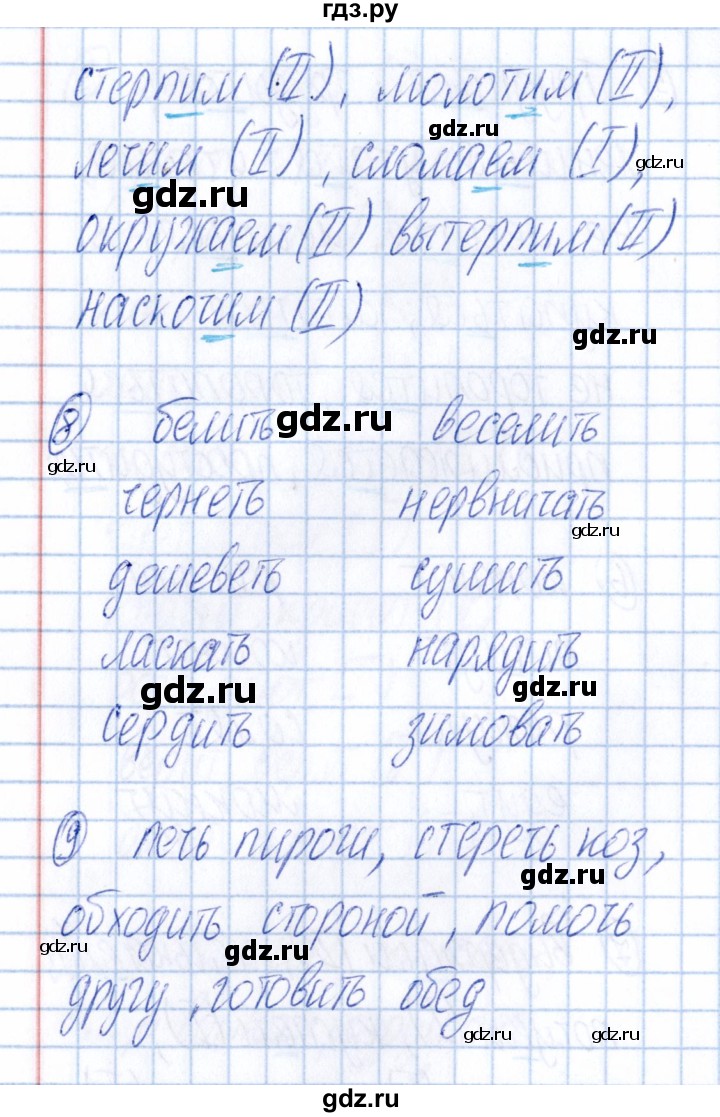 гдз.ру
стерпим (II), молотим (II),
gdz.ru
лечим (II), сломаем (I),
gdz.ru
gdz.ru
окружаем (II) вытерпим (II)
наскочим (II)
gdz.ru
8 белить веселить
gdz.ru
gdz.ru
чернеть нервничать
gdz.ru
дешеветь сушить
ласкать нарядить
gdz.ru
gdz.ru
сердить зимовать
9 печь пироги, стеречь коз,
gdz.ru
обходить стороной, помочь
gdz.ru
gdz.ru
другу, готовить обед
gdz.ru
gdz.ru
gdz.ru